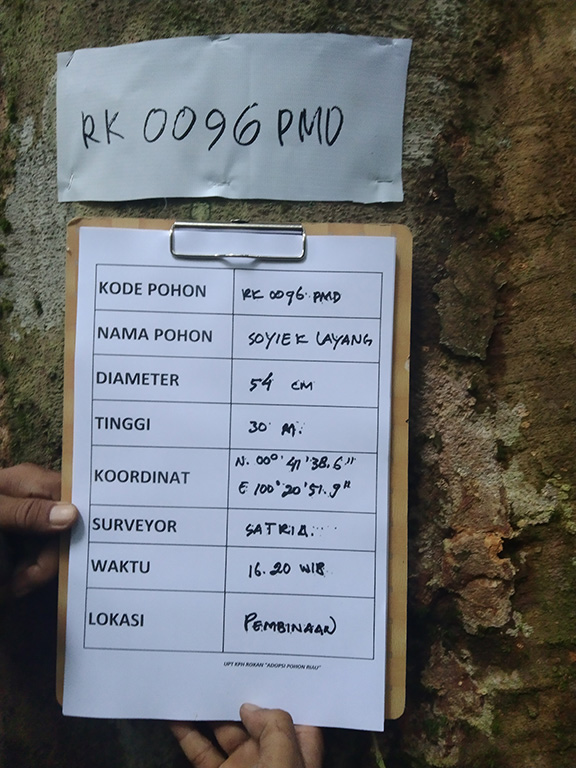 RK 0096 PMD
KODE POHON RK 0096 PMD
NAMA POHON SOYIEK LAYANG
DIAMETER 54 CM
TINGGI 30 M.
KOORDINAT N. 00° 41' 38.6"
E 100° 20' 51.9"
SURVEYOR SATRIA.
WAKTU 16.20 WIB
LOKASI PEMBINAAN
UPT KPH ROKAN "ADOPSI POHON RIAU"